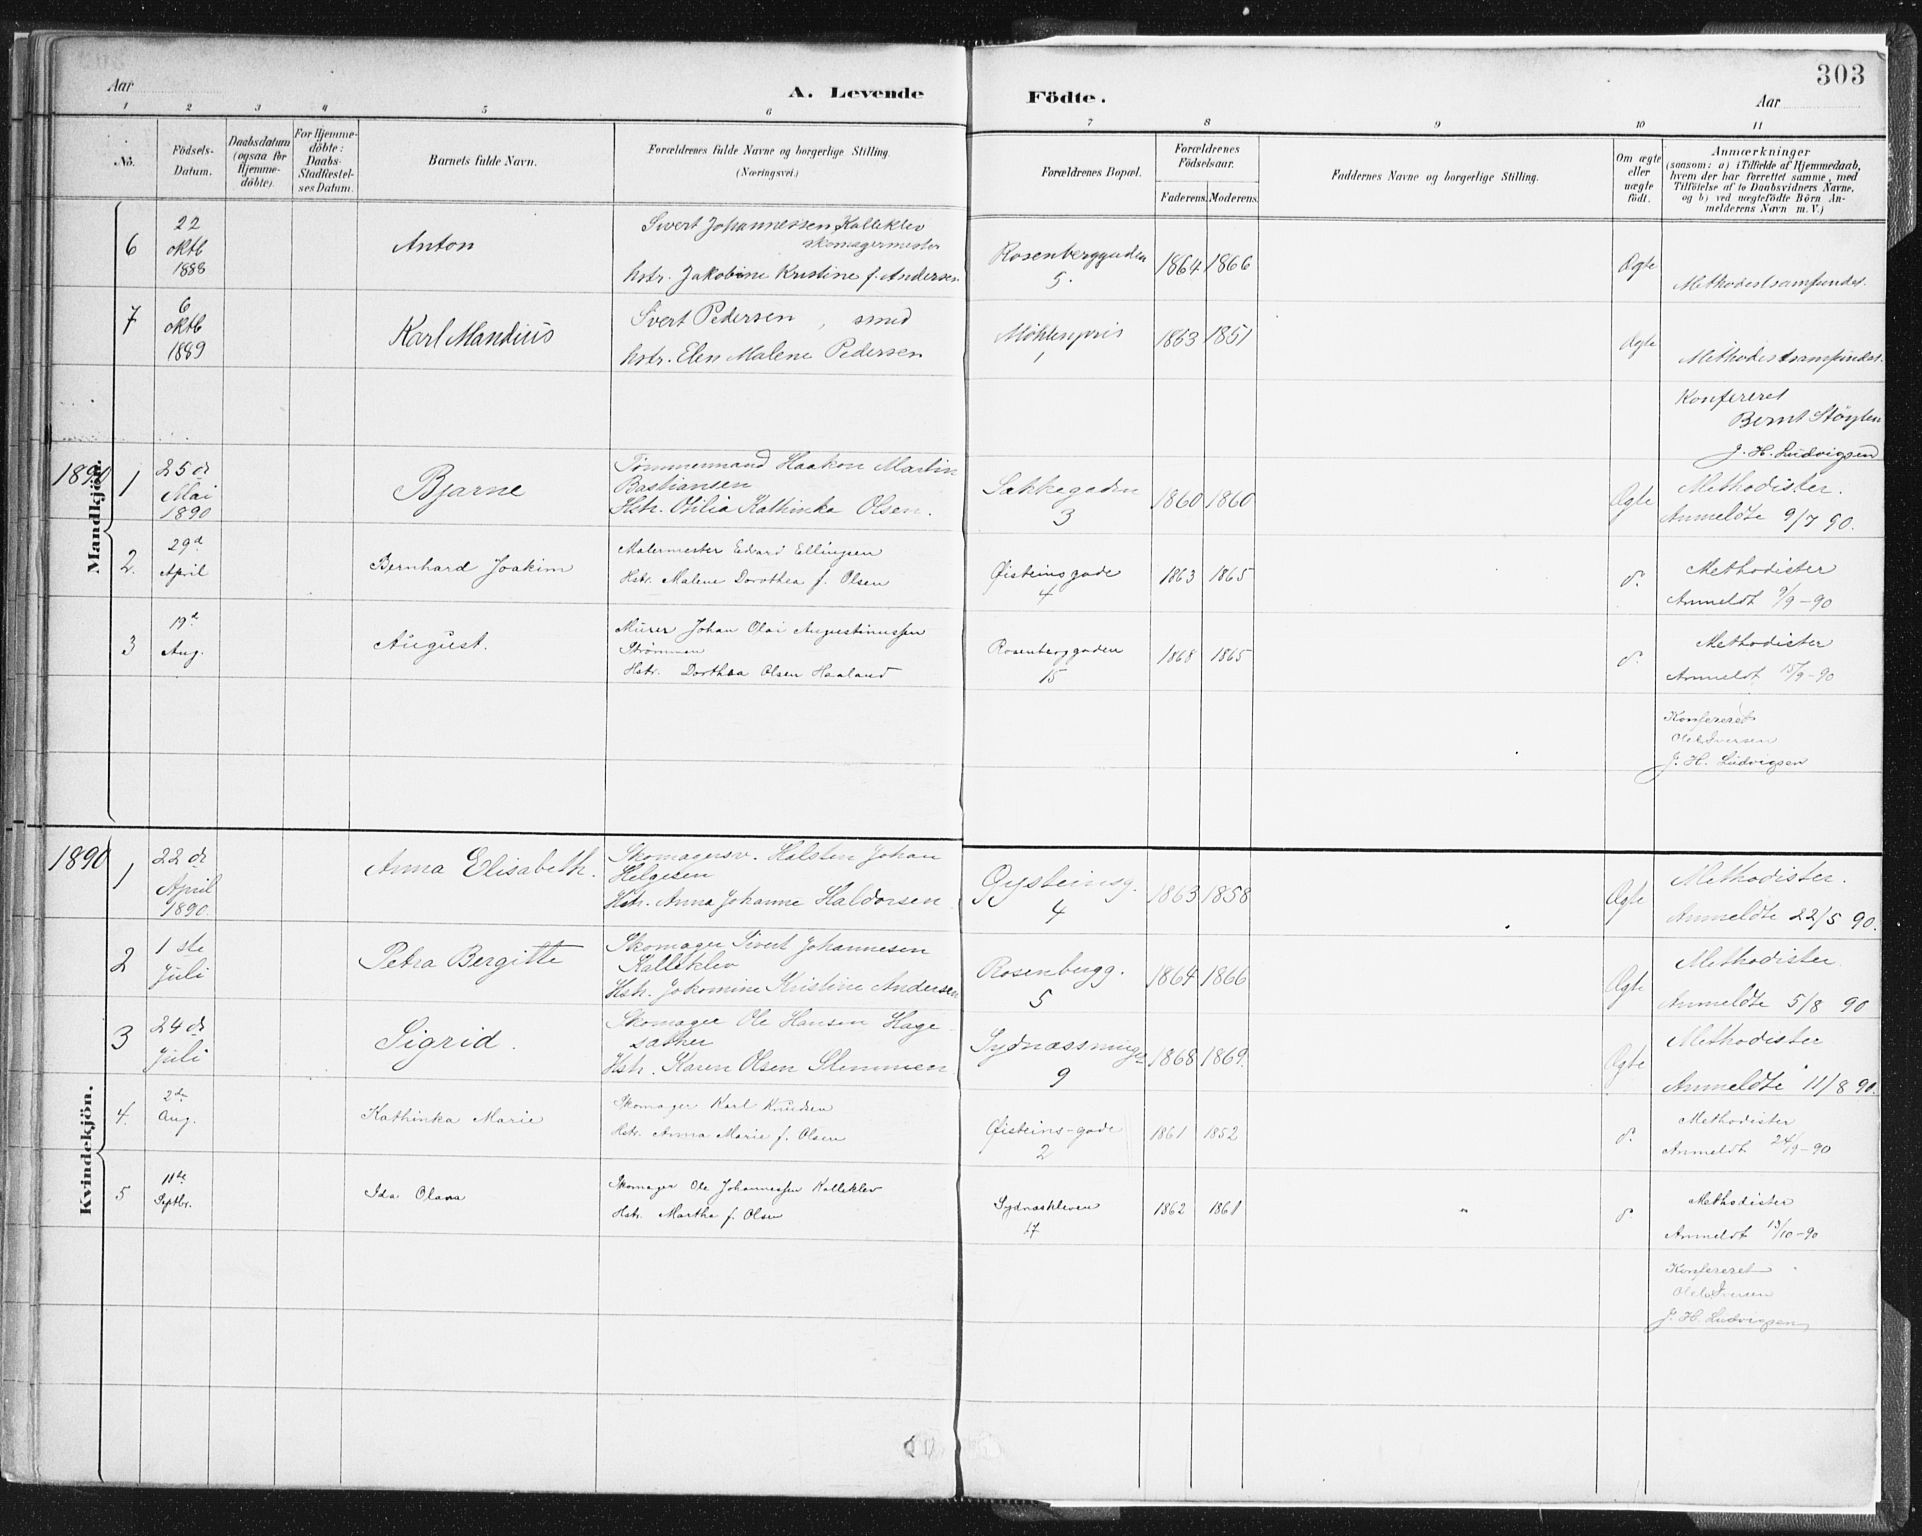 303
Aar
A. Levende
Födte.
Aar
1 2 3 4 5 6 7 8 9 10 11
No.
Födsels-Datum.
Daabsdatum (ogsaa for Hjemme-döbte).
For Hjemme-döbte: Daabs-Stadfæstel-ses Datum.
Barnets fulde Navn.
Forældrenes fulde Navne og borgerlige Stilling.
(Næringsvei.)
Forældrenes Bopæl.
Forældrenes Födselsaar.
Faderens. Moderens.
Faddernes Navne og borgerlige Stilling.
Om ægte eller uægte födt.
Anmærkninger
(saasom: a) i Tilfælde af Hjemmedaab,
hvem der har forrettet samme, med
Tilföielse af to Daabsvidners Navne,
og b) ved uægtefödte Börn An-
melderens Navn m. V.)
Mandkjön.
6 22 oktb 1888 Anton
Sivert Johannessen Kalleklev
skomagermester
hstr. Jakobine Kristine f. Andersen
Rosenberggaden 5. 1864 1866 Ægte Methodistsamfundet.
7 6 oktb 1889 Karl Mandius
Sivert Pedersen, smed
hstr. Elen Malene Pedersen
Möhlenpris 1 1863 1851 Ægte Methodistsamfundet.
Konfereret
Bernt Stöylen
J. H. Ludvigsen
1890 1 25 de Mai 1890 Bjarne
Tömmermand Haakon Martin
Bastiansen
Hstr. Otilia Kathinka Olsen.
Sækkegaden 3 1860 1860 Ægte Methodister.
Anmeldte 9/7 90.
2. 29d April Bernhard Joakim
Malermester Edvard Ellingsen
Hstr. Malene Dorothea f. Olsen
Øisteinsgade 4 1863 1865 d° Methodister
Anmeldt 9/9-90
3 19d Aug. August.
Murer Johan Olai Augustinussen
Strømmen
Hstr. Dorthea Olsen Haaland
Rosenberggaden 15 1868 1865 d° Methodister
Anmeldt 15/9-90
Konfereret
Ole Iversen
J. H. Ludvigsen
Kvindekjön.
1890 1 22 de April 1890. Anna Elisabeth.
Skomagersv. Halsten Johan
Helgesen
Hstr. Anna Johanne Haldorsen
Øysteinsg. 4 1863 1858 Ægte Methodister.
Anmeldte 22/5 90.
2 1ste Juli Petra Bergitte
Skomager Sivert Johannesen
Kalleklev
Hstr. Jokomine Kristine Andersen
Rosenbergg. 5 1864 1866 Ægte Methodister.
Anmeldte 5/8 90
3 24 de Juli Sigrid.
Skomager Ole Hansen Hage
sæther
Hstr. Karen Olsen Slemmen.
9 1868 1869. Ægte Methodister
Anmeldte 11/8 90.
4. 2de Aug. Kathinka Marie
Skomager Karl Knudsen
Hstr. Anna Marie f. Olsen
Øisteins-gade 2 1861 1852 d° Methodister
Anmeldt 24/9-90
5 11te Septbr. Ida Olava
Skomager Ole Johannessen Kalleklev
Hstr. Martha f. Olsen
Sydnæskleven 17 1862 1861 d° Methodister
Anmeldt 13/10-90
Konfereret
Ole Iversen
J. H. Ludvigsen